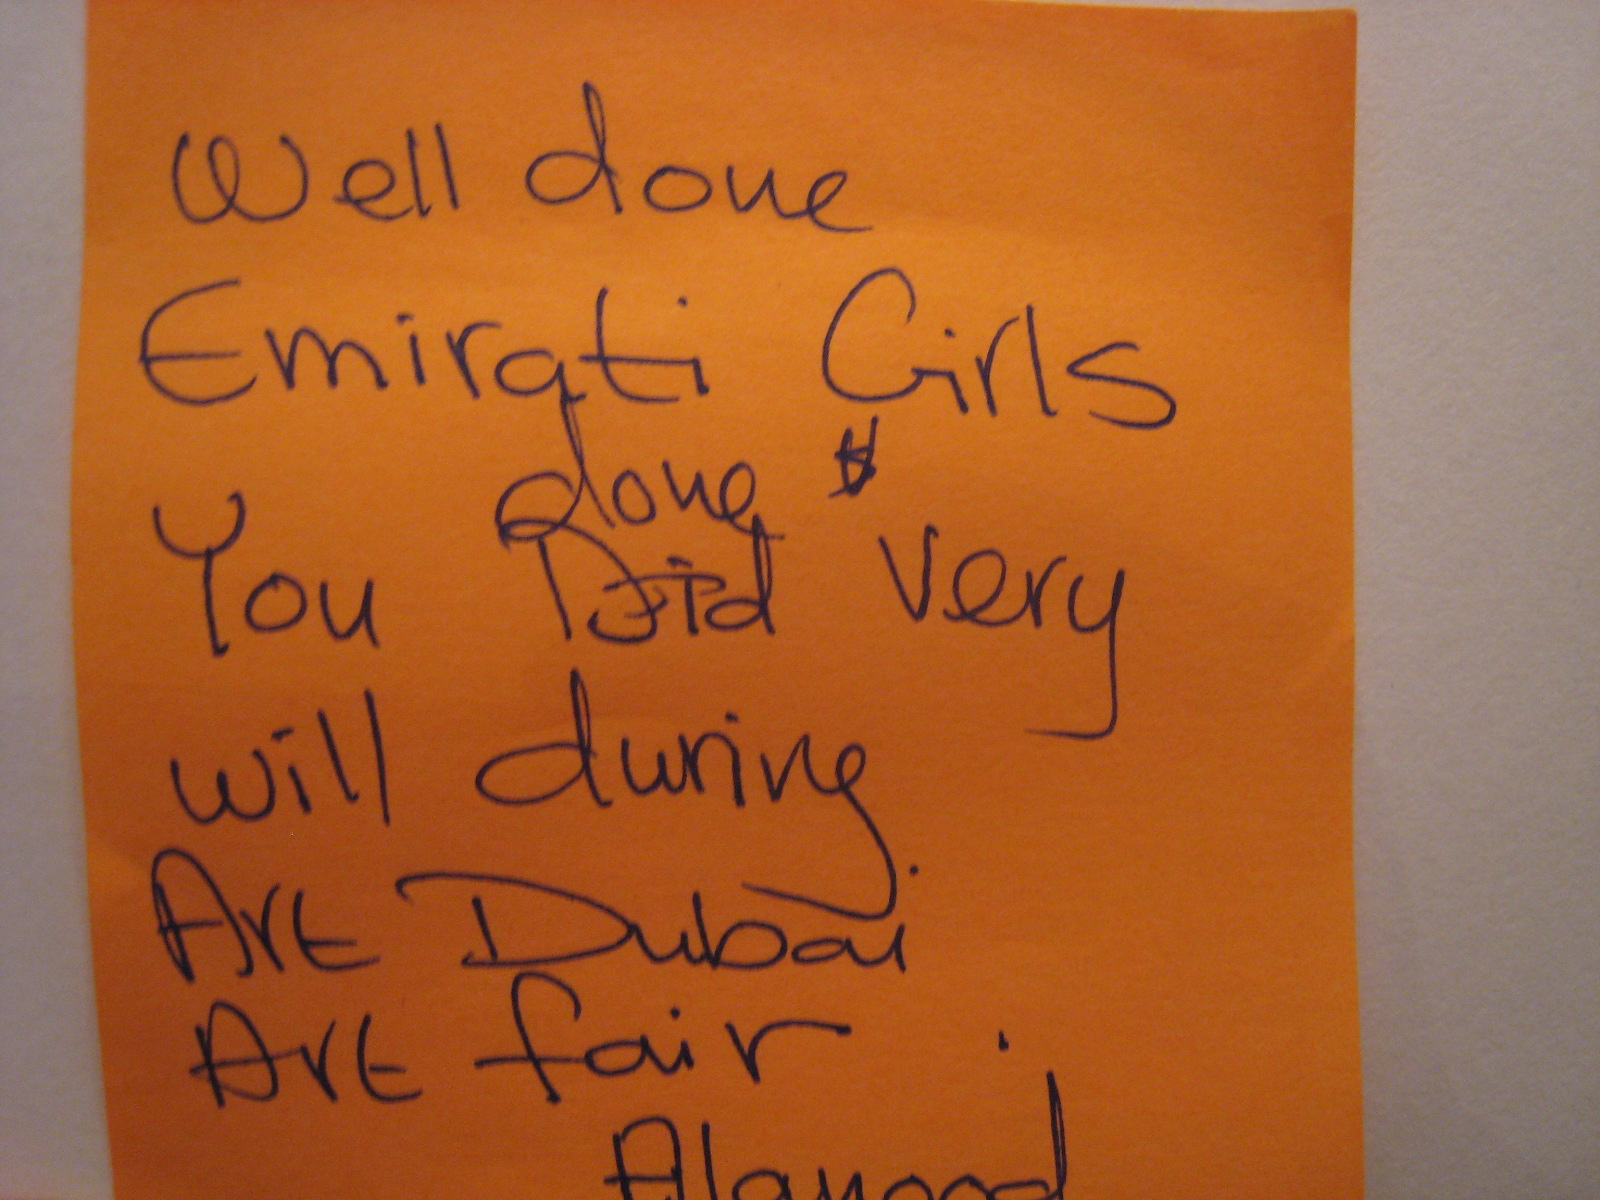 Well done
Emirati Girls
done
You Did very
will during
Art Dubai
Art fair .